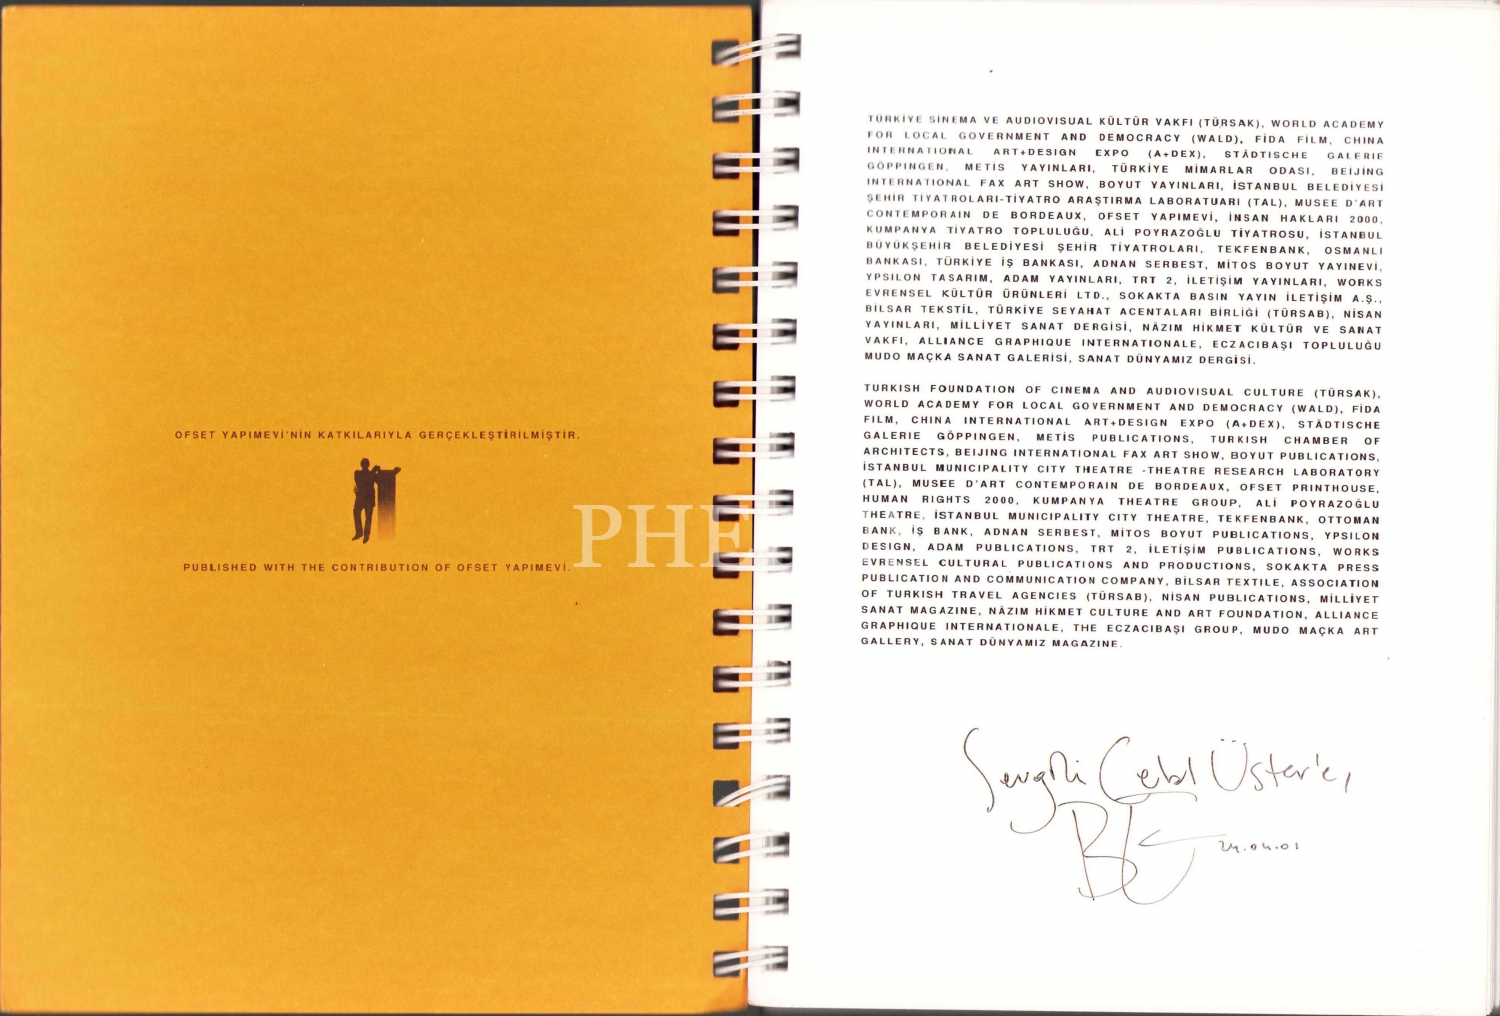 OFSET YAPIMEVİ'NİN KATKILARIYLA GERÇEKLEŞTİRİLMİŞTİR.
PUBLISHED WITH THE CONTRIBUTION OF OFSET YAPIMEVİ.
PHE
TÜRKİYE SİNEMA VE AUDIOVISUAL KÜLTÜR VAKFI (TÜRSAK), WORLD ACADEMY
FOR LOCAL GOVERNMENT AND DEMOCRACY (WALD), FİDA FİLM, CHINA
INTERNATIONAL ART+DESIGN EXPO (A+DEX), STÄDTISCHE GALERIE
GÖPPINGEN, METİS YAYINLARI, TÜRKİYE MİMARLAR ODASI, BEIJING
INTERNATIONAL FAX ART SHOW, BOYUT YAYINLARI, İSTANBUL BELEDİYESİ
ŞEHİR TİYATROLARI-TİYATRO ARAŞTIRMA LABORATUARI (TAL), MUSEE D'ART
CONTEMPORAIN DE BORDEAUX, OFSET YAPIMEVİ, İNSAN HAKLARI 2000,
KUMPANYA TİYATRO TOPLULUĞU, ALİ POYRAZOĞLU TİYATROSU, İSTANBUL
BÜYÜKŞEHİR BELEDİYESİ ŞEHİR TİYATROLARI, TEKFENBANK, OSMANLI
BANKASI, TÜRKİYE İŞ BANKASI, ADNAN SERBEST, MİTOS BOYUT YAYINEVİ,
YPSILON TASARIM, ADAM YAYINLARI, TRT 2, İLETİŞİM YAYINLARI, WORKS
EVRENSEL KÜLTÜR ÜRÜNLERİ LTD., SOKAKTA BASIN YAYIN İLETİŞİM A.Ş.,
BİLSAR TEKSTİL, TÜRKİYE SEYAHAT ACENTALARI BİRLİĞİ (TÜRSAB), NİSAN
YAYINLARI, MİLLİYET SANAT DERGİSİ, NÂZIM HİKMET KÜLTÜR VE SANAT
VAKFI, ALLIANCE GRAPHIQUE INTERNATIONALE, ECZACIBAŞI TOPLULUĞU
MUDO MAÇKA SANAT GALERİSİ, SANAT DÜNYAMIZ DERGİSİ.
TURKISH FOUNDATION OF CINEMA AND AUDIOVISUAL CULTURE (TÜRSAK),
WORLD ACADEMY FOR LOCAL GOVERNMENT AND DEMOCRACY (WALD), FİDA
FİLM, CHINA INTERNATIONAL ART+DESIGN EXPO (A+DEX), STÄDTISCHE
GALERIE GÖPPINGEN, METİS PUBLICATIONS, TURKISH CHAMBER OF
ARCHITECTS, BEIJING INTERNATIONAL FAX ART SHOW, BOYUT PUBLICATIONS,
İSTANBUL MUNICIPALITY CITY THEATRE -THEATRE RESEARCH LABORATORY
(TAL), MUSEE D'ART CONTEMPORAIN DE BORDEAUX, OFSET PRINTHOUSE,
HUMAN RIGHTS 2000, KUMPANYA THEATRE GROUP, ALİ POYRAZOĞLU
THEATRE, İSTANBUL MUNICIPALITY CITY THEATRE, TEKFENBANK, OTTOMAN
BANK, İŞ BANK, ADNAN SERBEST, MİTOS BOYUT PUBLICATIONS, YPSILON
DESIGN, ADAM PUBLICATIONS, TRT 2, İLETİŞİM PUBLICATIONS, WORKS
EVRENSEL CULTURAL PUBLICATIONS AND PRODUCTIONS, SOKAKTA PRESS
PUBLICATION AND COMMUNICATION COMPANY, BİLSAR TEXTILE, ASSOCIATION
OF TURKISH TRAVEL AGENCIES (TÜRSAB), NİSAN PUBLICATIONS, MİLLİYET
SANAT MAGAZINE, NÂZIM HİKMET CULTURE AND ART FOUNDATION, ALLIANCE
GRAPHIQUE INTERNATIONALE, THE ECZACIBAŞI GROUP, MUDO MAÇKA ART
GALLERY, SANAT DÜNYAMIZ MAGAZINE.
Sevgili Celal Üster'e,
24.04.01